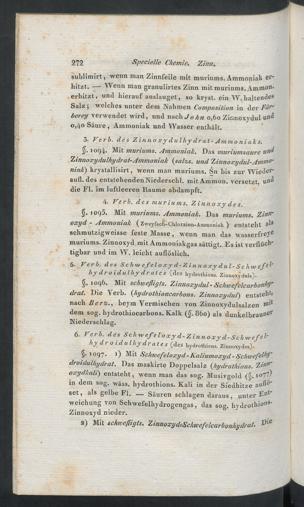 272 Specielle Chemie. Zinn.
sublimirt, wenn man Zinnfeile mit muriums. Ammoniak er-
hitzt. — Wenn man granulirtes Zinn mit muriums. Ammon.
erhitzt, und hierauf auslauget, so kryst. ein W. haltendes
Salz; welches unter dem Nahmen Composition in der Fär-
berey verwendet wird, und nach John 0,60 Zinnoxydul und
0,40 Säure, Ammoniak und Wasser enthält.
3. Verb. des Zinnoxydulhydrat-Ammoniaks.
§. 1094. Mit muriums. Ammoniak. Das muriumsaure und
Zinnoxydulhydrat-Ammoniak (salzs. und Zinnoxydul-Ammo-
niak) krystallisirt, wenn man muriums. Sn bis zur Wieder-
aufl. des entstehenden Niederschl. mit Ammon. versetzt, und
die Fl. im luftleeren Raume abdampft.
4. Verb. des muriums. Zinnoxydes.
§. 1095. Mit muriums. Ammoniak. Das muriums. Zinn-
oxyd-Ammoniak (Zweyfach-Chlorzinn-Ammoniak) entsteht als
schmutzigweisse feste Masse, wenn man das wasserfreye
muriums. Zinnoxyd mit Ammoniakgas sättigt. Es ist verflüch-
tigbar und im W. leicht auflöslich.
5. Verb. des Schwefeloxyd-Zinnoxydul-Schwefel-
hydroidulhydrates (des hydrothions. Zinnoxyduls).
§. 1096. Mit schwefligts. Zinnoxydul-Schwefelcarbonhy-
drat. Die Verb. (hydrothiocarbons. Zinnoxydul) entsteht
nach Berz., beym Vermischen von Zinnoxydulsalzen mit
dem sog. hydrothiocarbons. Kalk (§. 860) als dunkelbrauner
Niederschlag.
6. Verb. des Schwefeloxyd-Zinnoxyd-Schwefel-
hydroidulhydrates (des hydrothions. Zinnoxydes).
§. 1097. 1) Mit Schwefeloxyd-Kaliumoxyd-Schwefelhy-
droidulhydrat. Das maskirte Doppelsalz (hydrothions. Zinn-
oxydkali) entsteht, wenn man das sog. Musivgold (§. 1077)
in dem sog. wäss. hydrothions. Kali in der Siedhitze auflö-
set, als gelbe Fl. — Säuren schlagen daraus, unter Ent-
weichung von Schwefelhydrogengas, das sog. hydrothions.
Zinnoxyd nieder.
2) Mit schwefligts. Zinnoxyd-Schwefelcarbonhydrat. Die